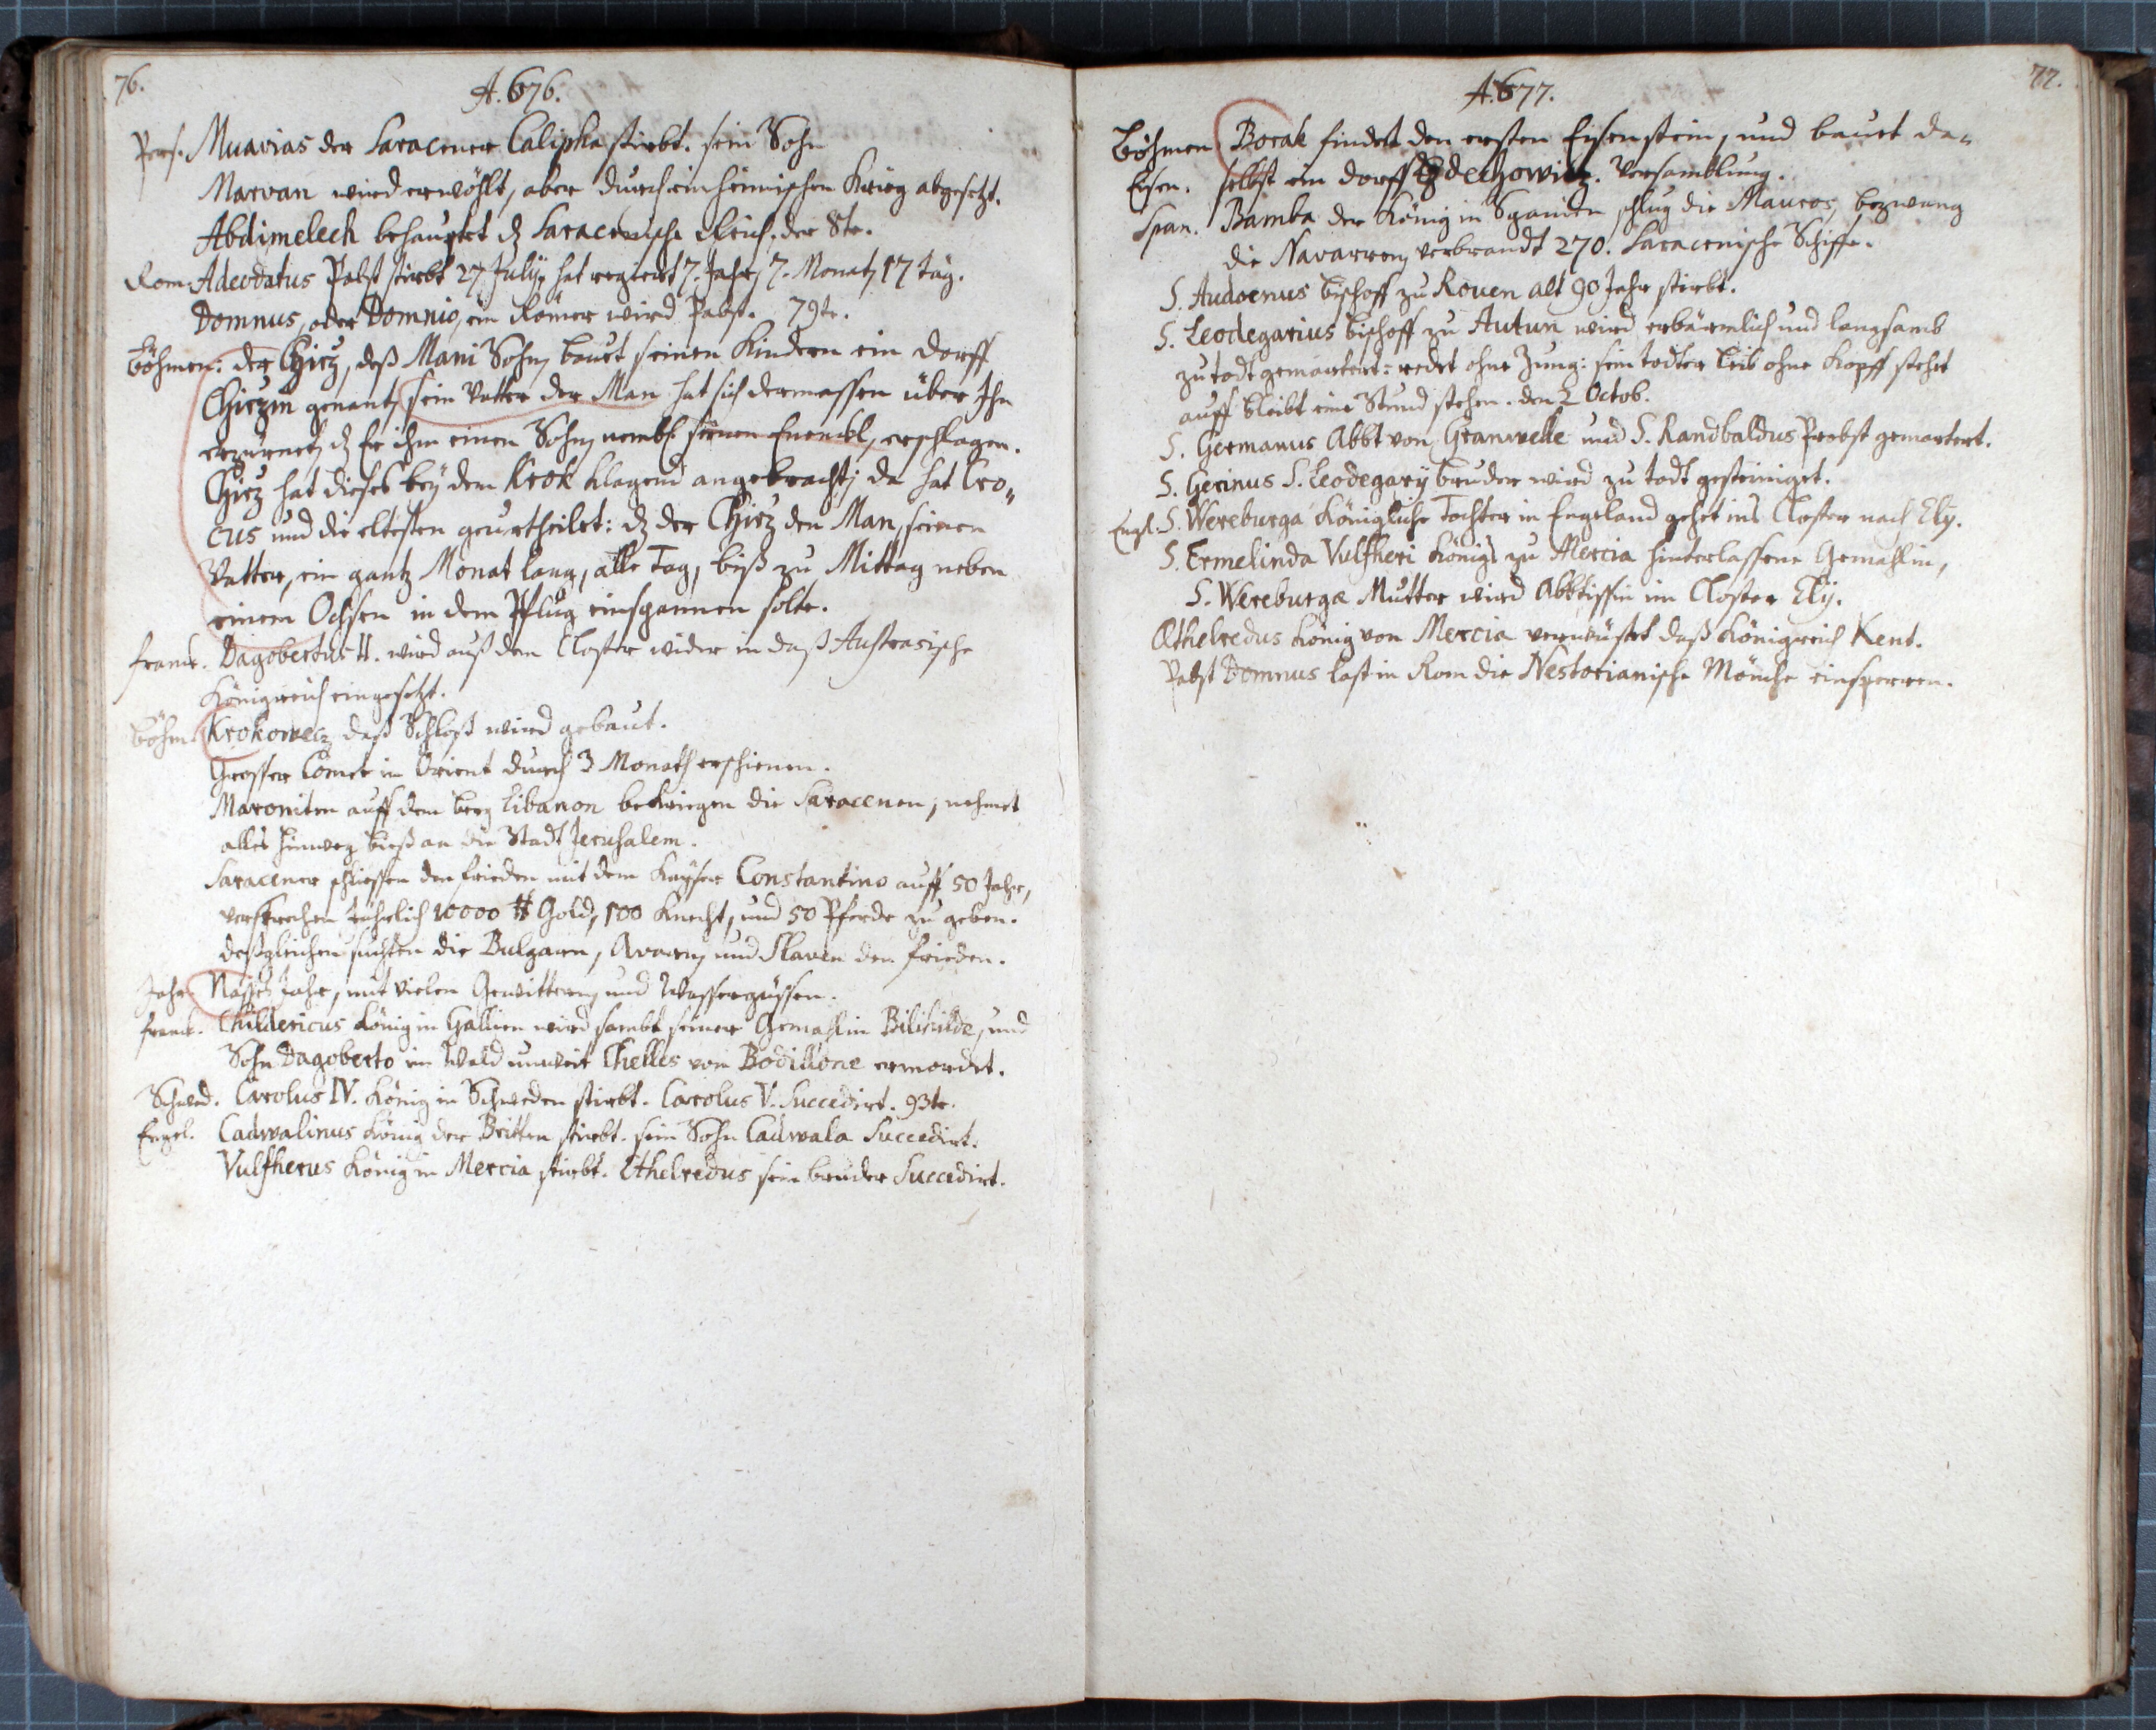 76.
A. 676.
Pers. Muavias der Saracener Calipha stirbt. sein Sohn
Marvan wird erwöhlt, aber durch einheimischen Krieg abgesetzt.
Abdimelech behauptet dz Saracenische Reich. der 8te.
Rom. Adeodatus Pabst stirbt 27 Julij, hat regiert 7. Jahr, 7. Monat, 17 Täg.
Domnus, oder Domnio, ein Römer wird Pabst. 79te.
Böhmen: der Chirz, deß Mani Sohn, bauet seinen Kindern ein Dorff
Chirzin genant, sein Vatter der Man hat sich dermassen über Ihn
erzürnet, dz Er ihm einen Sohn, nembl. seinen Enenckl, erschlagen.
Chirz hat dieses bey dem Krok klagend angebracht, da hat Cro„
cus und die eltesten geurtheilet: dz der Chirz den Man, seinen
Vatter, ein gantz Monat lang, alle Tag, biß zu Mittag neben
einem Ochsen in dem Pflug einspannen solte.
Franck. Dagobertus II. wird auß dem Closter wider in daß Austrasische
Königreich eingesetzt.
Böhm. Krokowecz daß Schloß wird gebaut.
Grosser Comet in Orient durch 3 Monath erschienen.
Maroniten auff dem berg Libanon bekriegen die Saracenen, nehmet
alles hinweg bieß an die Stadt Jerusalem.
Saracener schliessen den frieden mit dem Kayser Constantino auff 50 Jahr,
versprechen Jährlich 10000 ℔ Gold, 100 Knecht, und 50 Pferde zu geben.
deßgleichen suchten die Bulgarn, Avarn, und Slaven den frieden.
Jahr Nasses Jahr, mit vielen Gewittern, und Wassergüssen.
Franck. Childericus König in Gallien wird sambt seiner Gemahlin Bilihilde, und
Sohn Dagoberto im Wald unweit Chelles von Bodillone ermordet.
Schwed. Carolus IV. König in Schweden stirbt. Carolus V. Succedirt. 93te.
Engel. Cadwalinus König der Britten stirbt. sein Sohn Cadwala Succedirt.
Vulfherus König in Mercia stirbt. Ethelredus sein bruder Succedirt.
77.
A. 677.
Böhmen Borak findet den ersten Eisenstein, und bauet da„
Eisen. selbst ein dorff Versamblung.
Span. Bamba der König in Spanien schlug die Mauros, bezwang
die Navarren, verbrandt 270. Saracenische Schiffe.
S. Audoenus Bischoff zu Rouen alt 90 Jahr stirbt.
S. Leodegarius Bischoff zu Autun wird erbärmlich und langsamb
zu todt gemartert: redet ohne Zung: sein todter Leib ohne Kopff stehet
auff bleibt eine Stund stehen. den 2 Octob.
S. Germanus Abbt von Granvelle und S. Randbaldus Probst gemartert.
S. Gerinus S. Leodegarij bruder wird zu todt gesteiniget.
Engl. S. Wereburga Königliche Tochter in Engeland gehet ins Closter nach Ely.
S. Ermelinda Vulfheri Königs zu Mercia hinterlassene Gemahlin,
S. Wereburgæ Mutter wird Abbtissin im Closter Elÿ.
Æthelredus König von Mercia verwüstet daß Königreich Kent.
Pabst Domnus last in Rom die Nestorianische Mönche einsperren.